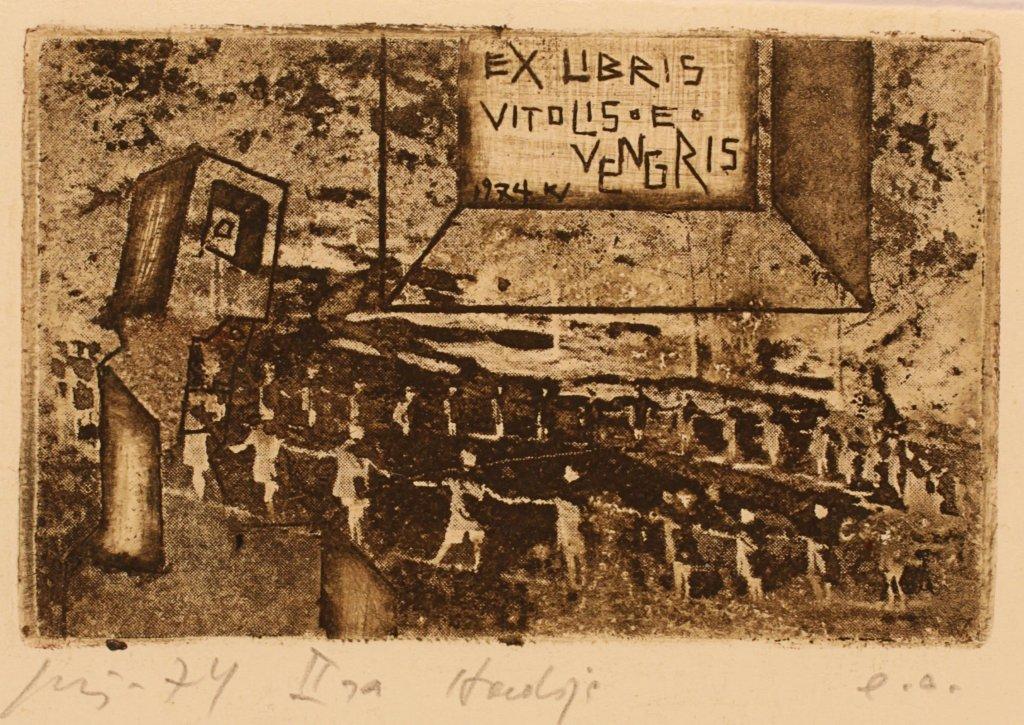 EX LIBRIS
VITOLIS·E·
VENGRIS
1974 KV
-74 II e.a.